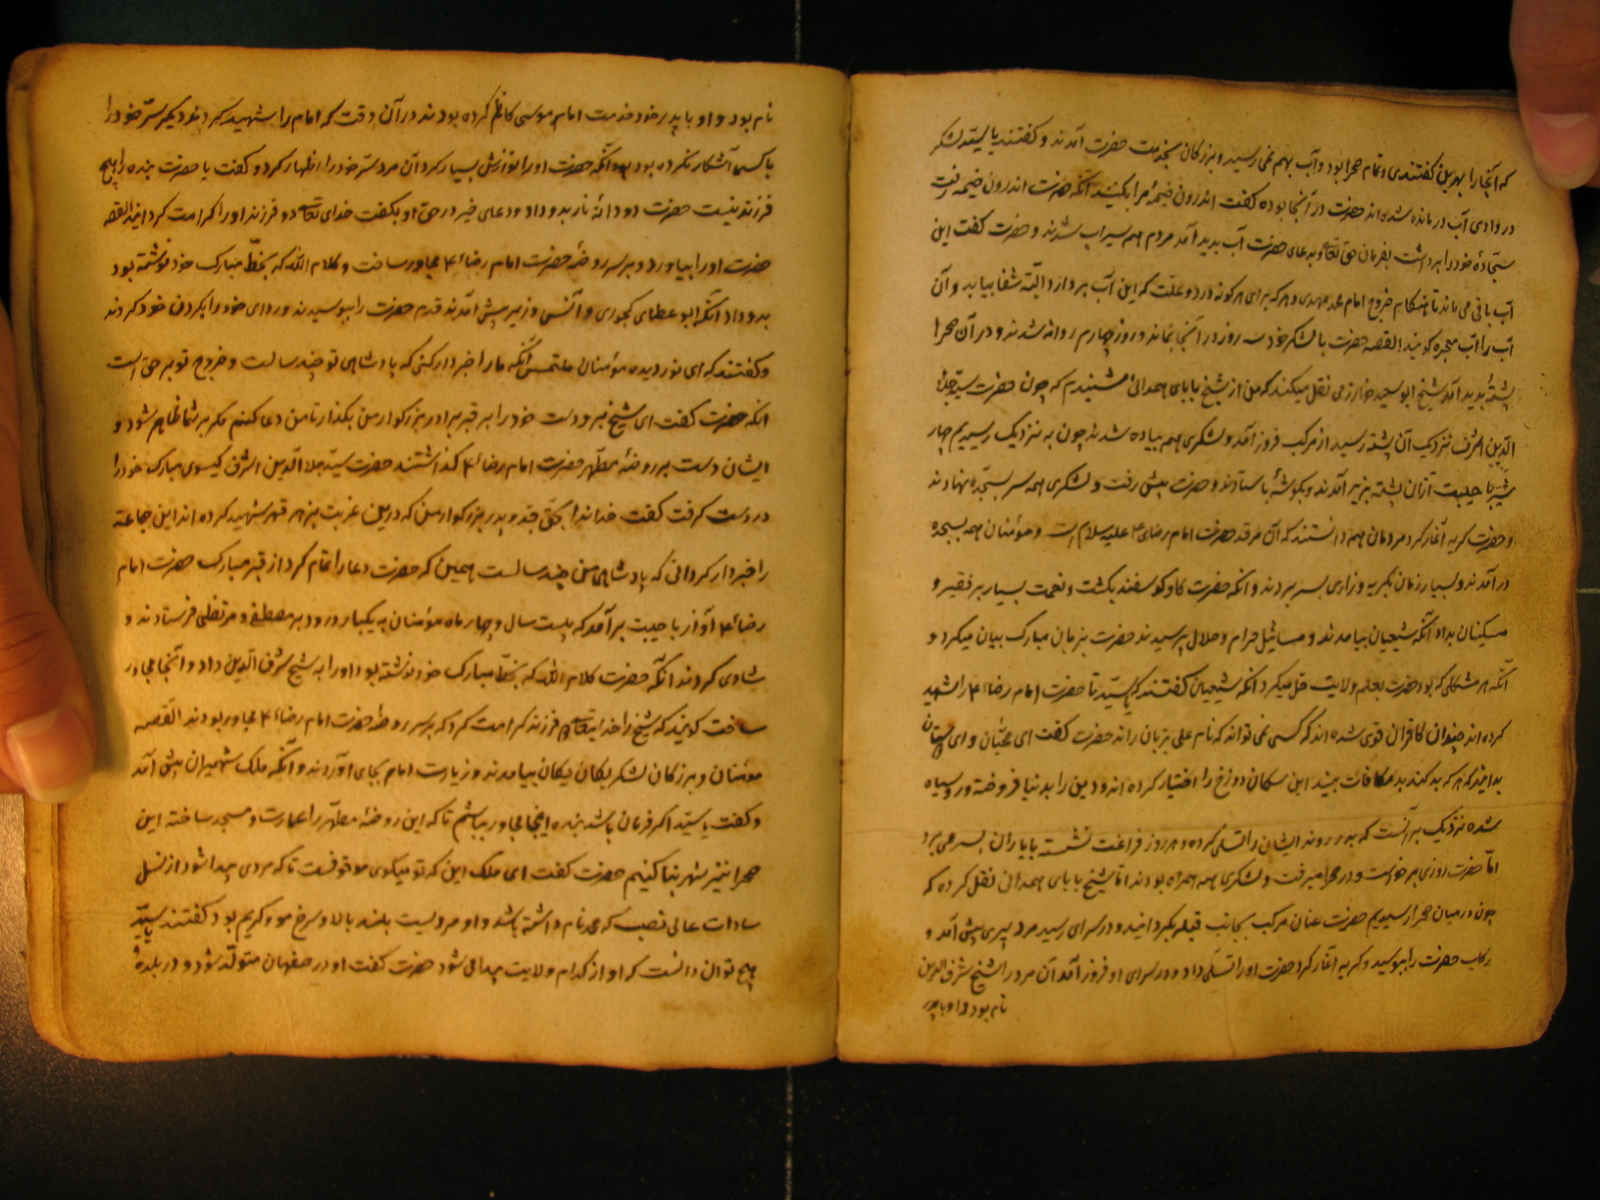 که آنجا را بهرین گفتندی و تمام صحرا بود و آب بهم نمی رسید و بزرکان بخدمت حضرت آمدند و کفتند یا سید لشکر
در وادی آب درمانده شده اند حضرت در آنجا بوده کفت اندرون خیمهٔ مرا بکنید آنکه حضرت اندرون خیمه رفت
سجّادهٔ خود را برداشت بفرمان حق تعالی و بدعای حضرت آب بدید آمد مردم همه سیراب شدند و حضرت کفت این
آب باقی می ماند تا هنکام خروج امام محمد مهدی و هر که برای هر کونه درد و علّت که این آب بردارد البته شفا بیابد و آن
آب را آب معجزه کویند القصه حضرت با لشکر خود سه روز در آنجا بماند و روز چهارم روانه شدند و در آن صحرا
پشتهٔ بدید آمد شیخ ابو سعید خوارزمی نقل میکند که من از شیخ بابای همدانی شنیدم که چون حضرت سید جلال
الدین اشرف نزدیک آن پشته رسید از مرکب فروز آمد و لشکری همه پیاده شدند چون به نزدیک رسیدیم چهار
شیر با هیبت از آن پشته بزیر آمدند و بکوشهٔ باستادند و حضرت پیش رفت و لشکری همه سر بسجده نهادند
و حضرت کریه آغاز کرد مردمان همه دانستند که آن مرقد حضرت امام رضای علیه سلام است و مؤمنان همه بسجده
درآمدند و بسیار زمان بکریه و زاری بسر بردند و آنکه حضرت کاو کوسفند بکشت و نعمت بسیار بر فقیر و
مسکینان بداد آنکه شیعیان بیامدند و مسائیل حرام و حلال پرسیدند حضرت بزبان مبارک بیان میکرد و
آنکه هر مشکلی که بود حضرت بعلم ولایت حل میکرد آنکه شیعیان کفتند که یا سید تا حضرت امام رضا ع را شهید
کرده اند چندان کافران قوی شده اند که کسی نمی تواند که نام علی بزبان راند حضرت کفت ای محبّان و ای دوستان
بدانید که هر که بد کند بد مکافات بیند این سکان دوزخ را اختیار کرده اند و دین را بدنیا فروخته و رو سیاه
شده نزدیک بر آنست که بدر روند ایشان را تسلی کرده و هر روز فراغت نشسته با یاران بسر می برد
امّا حضرت روزی برخواست و در صحرا میرفت و لشکری همه همراه بودند امّا شیخ بابای همدانی نقل کرده که
چون در میان صحرا رسیدیم حضرت عنان مرکب بجانب قبله بکردانید و در سرای رسید مرد پیری پیش آمد و
رکاب حضرت را ببوسید و کریه آغاز کرد حضرت او را تسلی داد و در سرای او فروز آمد آن مرد را شیخ شرف الدین
نام بود و او با پدر
نام بود و او با پدر خود خدمت امام موسی کاظم کرده بودند در آن وقت که امام را شهید کردند دیکر سرّ خود را
با کسی آشکار نکرده بود و آنکه حضرت او را نوازش بسیار کرد آن مرد سرّ خود را اظهار کرد و کفت یا حضرت بنده را هیچ
فرزند نیست حضرت دو دانهٔ نار بدو داد و دعای خیر در حق او بکفت خدای تعالی دو فرزند او را کرامت کردانید القصه
حضرت او را بیاورد و بر سر روضهٔ حضرت امام رضا ع مجاور ساخت و کلام الله که بخط مبارک خود نوشته بود
بدو داد آنکه ابو عطای کجوری و آنس وزیر پیش آمدند قدم حضرت را ببوسیدند و ردای خود را بکردن خود کردند
و کفتند که ای نور دیده مؤمنان ملتمس آنکه ما را خبردار کنی که پادشاهی تو چند سالست و خروج تو بر حق است
آنکه حضرت کفت ای شیخ بر و دست خود را بر قبر برادر بزرکوار من بکذار تا من دعا کنم مکر بر شما ظاهر شود و
ایشان دست بر روضهٔ مطهر حضرت امام رضا ع کذاشتند حضرت سید جلال الدین اشرف کیسوی مبارک خود را
در دست کرفت کفت خداندا بحق جد و پدر بزرکوار من که درین غربت بزهر قهر شهید کرده اند این جماعة
را خبردار کردانی که پادشاهی من چند سالست همین که حضرت دعا را تمام کرد از قبر مبارک حضرت امام
رضا ع آواز با هیبت برآمد که بیست سال و چهار ماه مؤمنان به یکبار درود بر مصطفی و مرتضی فرستادند و
شادی کردند آنکه حضرت کلام الله که بخط مبارک خود نوشته بود او را به شیخ شرف الدین داد و آنجا مجاور
ساخت کویند که شیخ را خدا ایتعالی فرزند کرامت کرد که بر سر روضهٔ حضرت امام رضا ع مجاور بودند القصه
مؤمنان و بزرکان لشکر یکان یکان بیامدند و زیارت امام بجای آوردند و آنکه ملک شهمیران پیش آمد
و کفت یا سید اکر فرمان باشد بنده اینجا مجاور بباشم تا که این روضهٔ مطهر را عمارت و مسجد ساخته این
صحرا نیز شهر بنا کنیم حضرت کفت ای ملک این که تو میکوی موقوفست تا که مردی پیدا شود از نسل
سادات عالی نصب که محمد نام داشته باشد و او مردیست بلند بالا و سرخ مو و کریم بود کفتند یا سید
هیچ توان دانست که او از کدام ولایت پیدا می شود حضرت کفت او در صفهان متولّد شود و در بلدهٔ